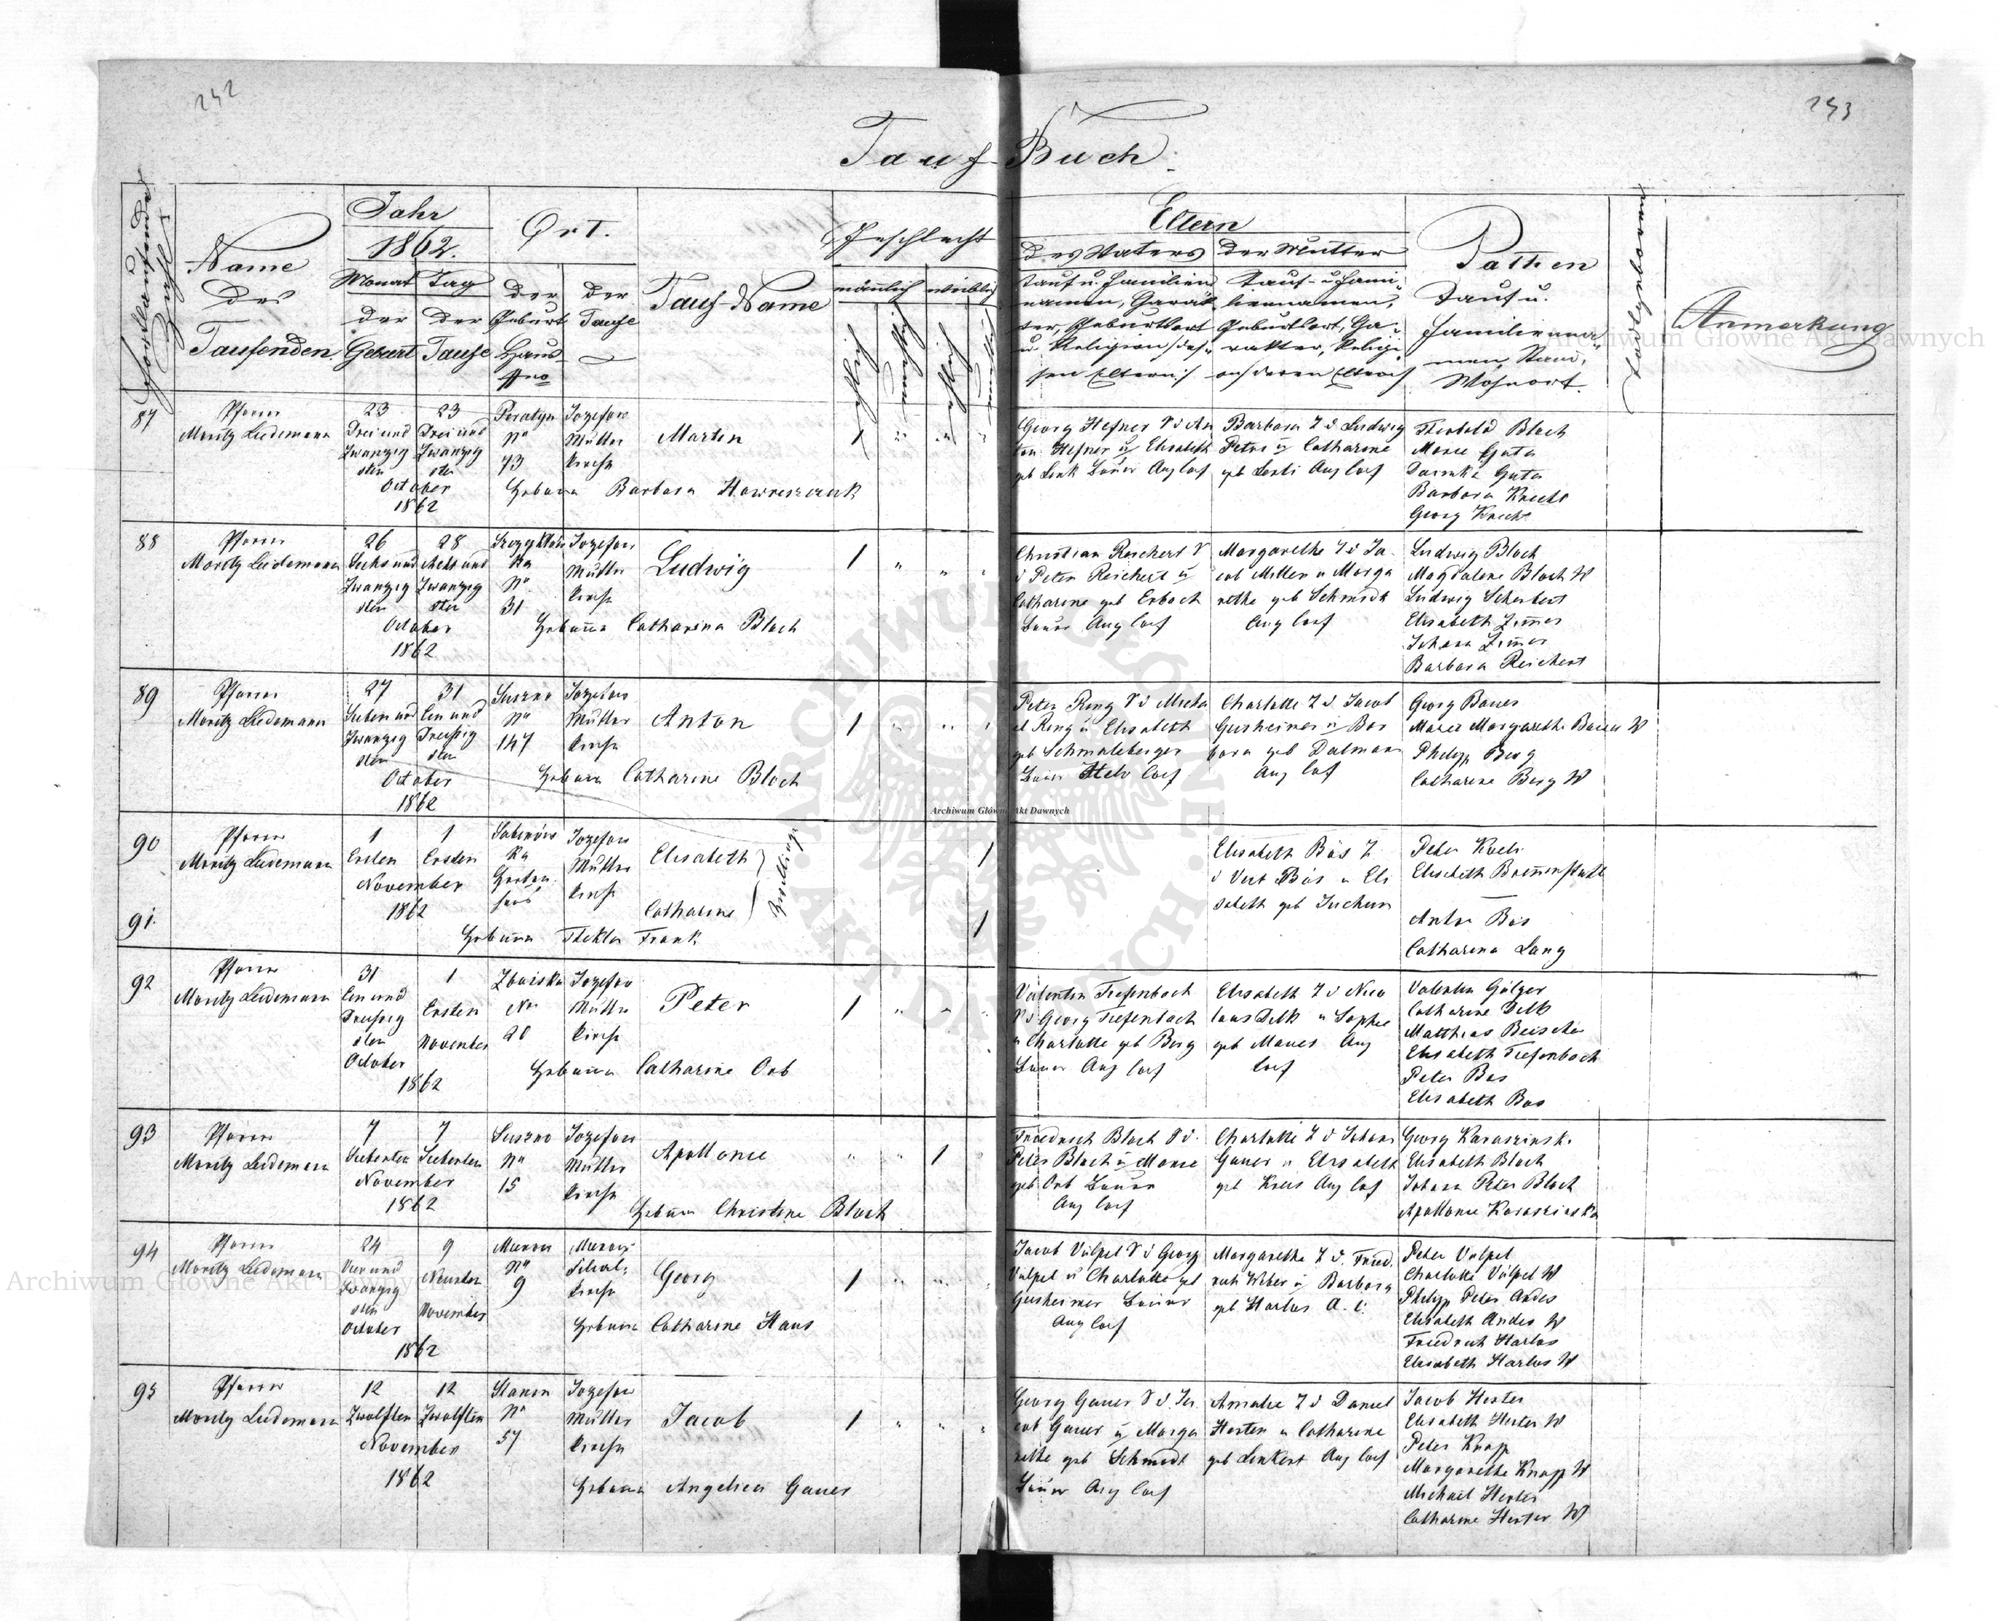 242
243
Tauf-Buch.
Fortlaufende Zahl
Name des Taufenden
Jahr
1862.
Monat
Tag
der Geburt
der Taufe
Ort.
der Geburt Haus Nro
der Taufe
Tauf Name
Geschlecht
männlich
weiblich
ehlich
unehlich
ehlich
unehlich
Eltern
des Vaters
der Mutter
Tauf u. Familien
namen, Charak
ter, Geburtsort
u. Religion des
sen Eltern
Tauf- u. Fami
liennamen,
Geburtsort, Cha
rakter, Religi
on deren Eltern
Pathen
Tauf u.
Familienna
men, Stand,
Wohnort
todtgeboren
Anmerkung
87
Pfarrer
Moritz Luedemann
23
Drei und
Zwanzig
sten
23
Drei und
Zwanzig
sten
October
1862
No
73
Jozefow
Mutter
kirche
Martin
1
Hebama Barbara Hawreszczuk
Georg Hefner S d An
ton Hefner u Elisabeth
geb Lenk Bauer Aug Conf
Barbara T d Ludwig
Peter u Catharine
Aug Conf
Theobald Bloch
Marie Guta
Guta
Barbara Knecht
Georg Knecht
88
Pfarrer
Moritz Luedemann
26
Sechs und
Zwanzig
sten
28
Acht und
Zwanzig
sten
October
1862
No
31
Jozefow
Mutter
kirche
Ludwig
1
Hebama Catharina Bloch
Christian Reichert S
d Peter Reichert u
Catharine geb Erbach
Bauer Aug Conf
Margarethe T d Ja
cob Miller u Marga
rethe geb Schmidt
Aug Conf
Ludwig Bloch
Magdalene Bloch W
Ludwig Scherbert
Elisabeth Zimmer
Johann Zimmer
Barbara Reichert
89
Pfarrer
Moritz Luedemann
27
Sieben und
Zwanzig
sten
31
Ein und
Dreissig
sten
October
1862
Suszno
No
147
Jozefow
Mutter
kirche
Anton
1
Hebama Catharine Bloch
Peter Ring S d Micha
el Ring u Elisabeth
geb Schmaleberger
Bauer Helv Conf
Charlotte T d Jacob
Gersheimer u Bar
bara geb Dalmann
Aug Conf
Georg Bauer
Marie Margarethe Bauer W
Philipp Berg
Catharine Berg W
90
Pfarrer
Moritz Luedemann
1
Ersten
1
Ersten
November
1862
Jozefow
Mutter
kirche
Elisabeth
Zwillinge
1
91.
Catharine
1
Hebama Thekla Frank
Elisabeth Bäs T
d Veit Bäs u Eli
sabeth geb
Peter
Elisabeth
Anton Bäs
Catharina Lang
92
Pfarrer
Moritz Luedemann
31
Ein und
Dreissig
sten
October
1
Ersten
November
1862
No
20
Jozefow
Mutter
kirche
Peter
1
Hebama Catharine Orb
Valentin Tiefenbach
S d Georg Tiefenbach
u Charlotte geb Berg
Bauer Aug Conf
Elisabeth T d Nico
laus Delk u Sophie
geb Manes Aug
Conf
Valentin Gölzer
Catharine Delk
Matthias Beischer
Elisabeth Tiefenbach
Peter Bas
Elisabeth Bas
93
Pfarrer
Moritz Luedemann
7
Siebenten
7
Siebenten
November
1862
Suszno
No
15
Jozefow
Mutter
kirche
Apollonie
1
Hebama Christine Bloch
Friedrich Bloch S d.
Peter Bloch u Marie
geb Orb Bauer
Aug Conf
Charlotte T d Johann
Gauer u Elisabeth
geb Kreis Aug Conf
Georg Karaszinski
Elisabeth Bloch
Johann Peter Bloch
Apollonie Karaszinska
94
Pfarrer
Moritz Luedemann
24
Vier und
Zwanzig
sten
October
9
Neunten
November
1862
No
9
Filial
kirche
Georg
1
Hebama Catharine Haus
Jacob Völpel S d Georg
Völpel u Charlotte geb
Gersheimer Bauer
Aug Conf
Margarethe T d. Fried
rich Weber u Barbara
geb Harlos A. C.
Peter Völpel
Charlotte Völpel W
Philipp Peter Andes
Elisabeth Andes W
Friedrich Harlos
Elisabeth Harlos W
95
Pfarrer
Moritz Luedemann
12
Zwölften
12
Zwölften
November
1862
Stanin
No
57
Jozefow
Mutter
kirche
Jacob
1
Hebama Angelica Gauer
Georg Gauer S d. Ja
cob Gauer u Marga
rethe geb Schmidt
Bauer Aug Conf
Amalie T d Daniel
Herter u Catharine
geb Lenkert Aug Conf
Jacob Herter
Elisabeth Herter W
Peter Knapp
Margarethe Knapp W
Michael Herter
Catharine Herter W
Archiwum Główne Akt Dawnych
Archiwum Główne Akt Dawnych
Archiwum Główne Akt Dawnych
ARCHIWUM GŁÓWNE AKT DAWNYCH